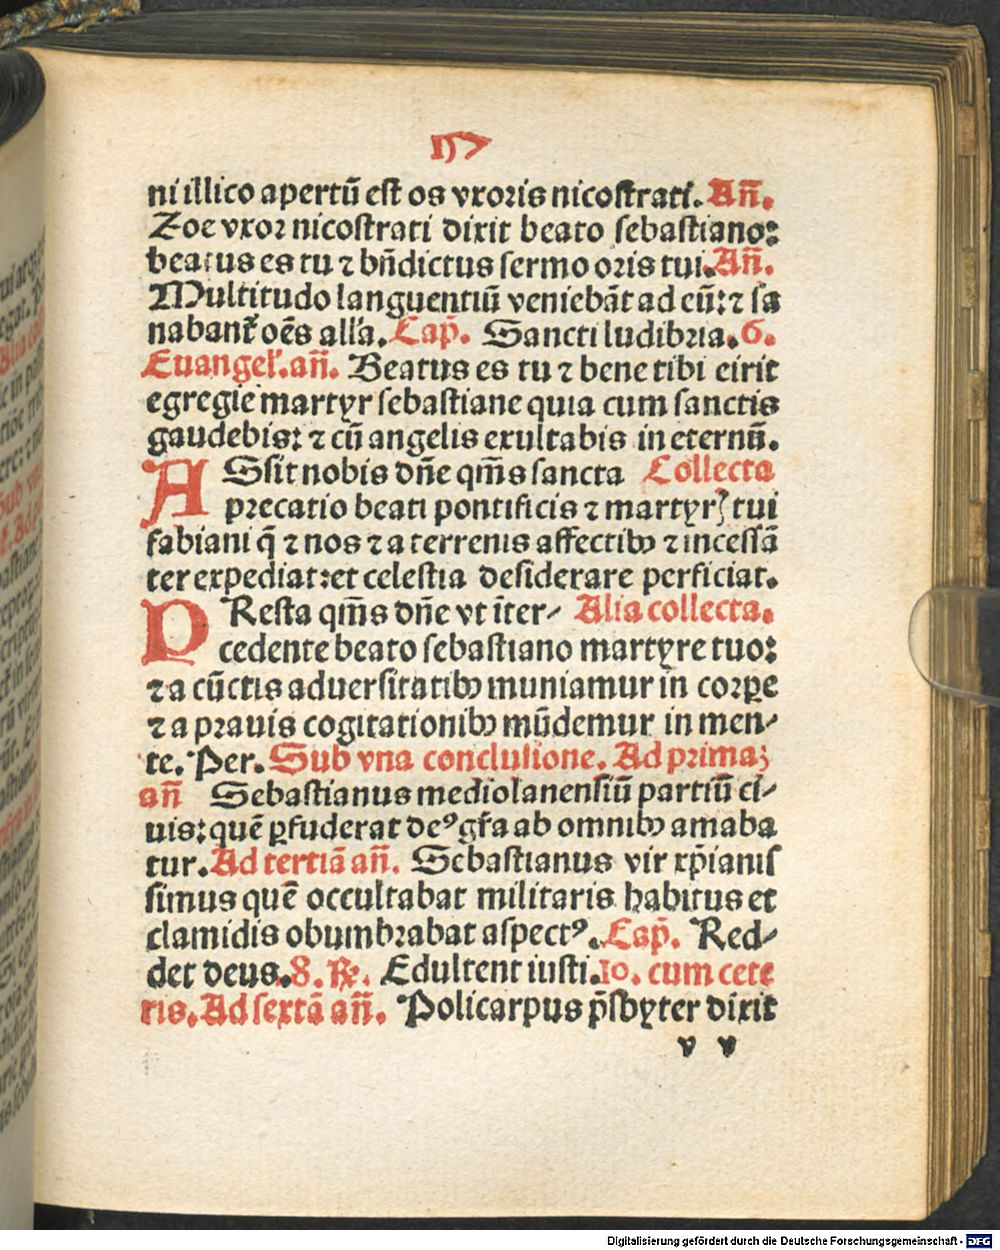 157
ni illico apertū est os vxoris nicostrati. Añ.
Zoe vxor nicostrati dixit beato sebastiano:
beatus es tu ⁊ bn̄dictus sermo oris tui. Añ.
Multitudo languentiū veniebāt ad eū: ⁊ sa
nabant᷑ oēs all'a. Cap̄. Sancti ludibria. 6.
Euangel'. añ. Beatus es tu ⁊ bene tibi eirit
egregie martyr sebastiane quia cum sanctis
gaudebis: ⁊ cū angelis exultabis in eternū.
ASsit nobis dn̄e qm̄s sancta Collecta
precatio beati pontificis ⁊ martyrꝭ tui
fabiani q̄ ⁊ nos ⁊ a terrenis affectibꝰ ⁊ incessā
ter expediat: et celestia desiderare perficiat.
PResta qm̄s dn̄e vt īter⸗ Alia collecta.
cedente beato sebastiano martyre tuo:
⁊ a cūctis aduersitatibꝰ muniamur in corpe
⁊ a prauis cogitationibꝰ mūdemur in men⸗
te. Per. Sub vna conclusione. Ad primaꝫ
añ Sebastianus mediolanensiū partiū ci⸗
uis: quē ꝑfuderat deꝰ gr̄a ab omnibꝰ amaba
tur. Ad tertiā añ. Sebastianus vir xp̄ianis
simus quē occultabat militaris habitus et
clamidis obumbrabat aspectꝰ. Cap̄. Red⸗
det deus. 8. ℟. Edultent iusti. 10. cum cete
ris. Ad sextā añ. Policarpus p̄sbyter dixit
v v
Digitalisierung gefördert durch die Deutsche Forschungsgemeinschaft - DFG